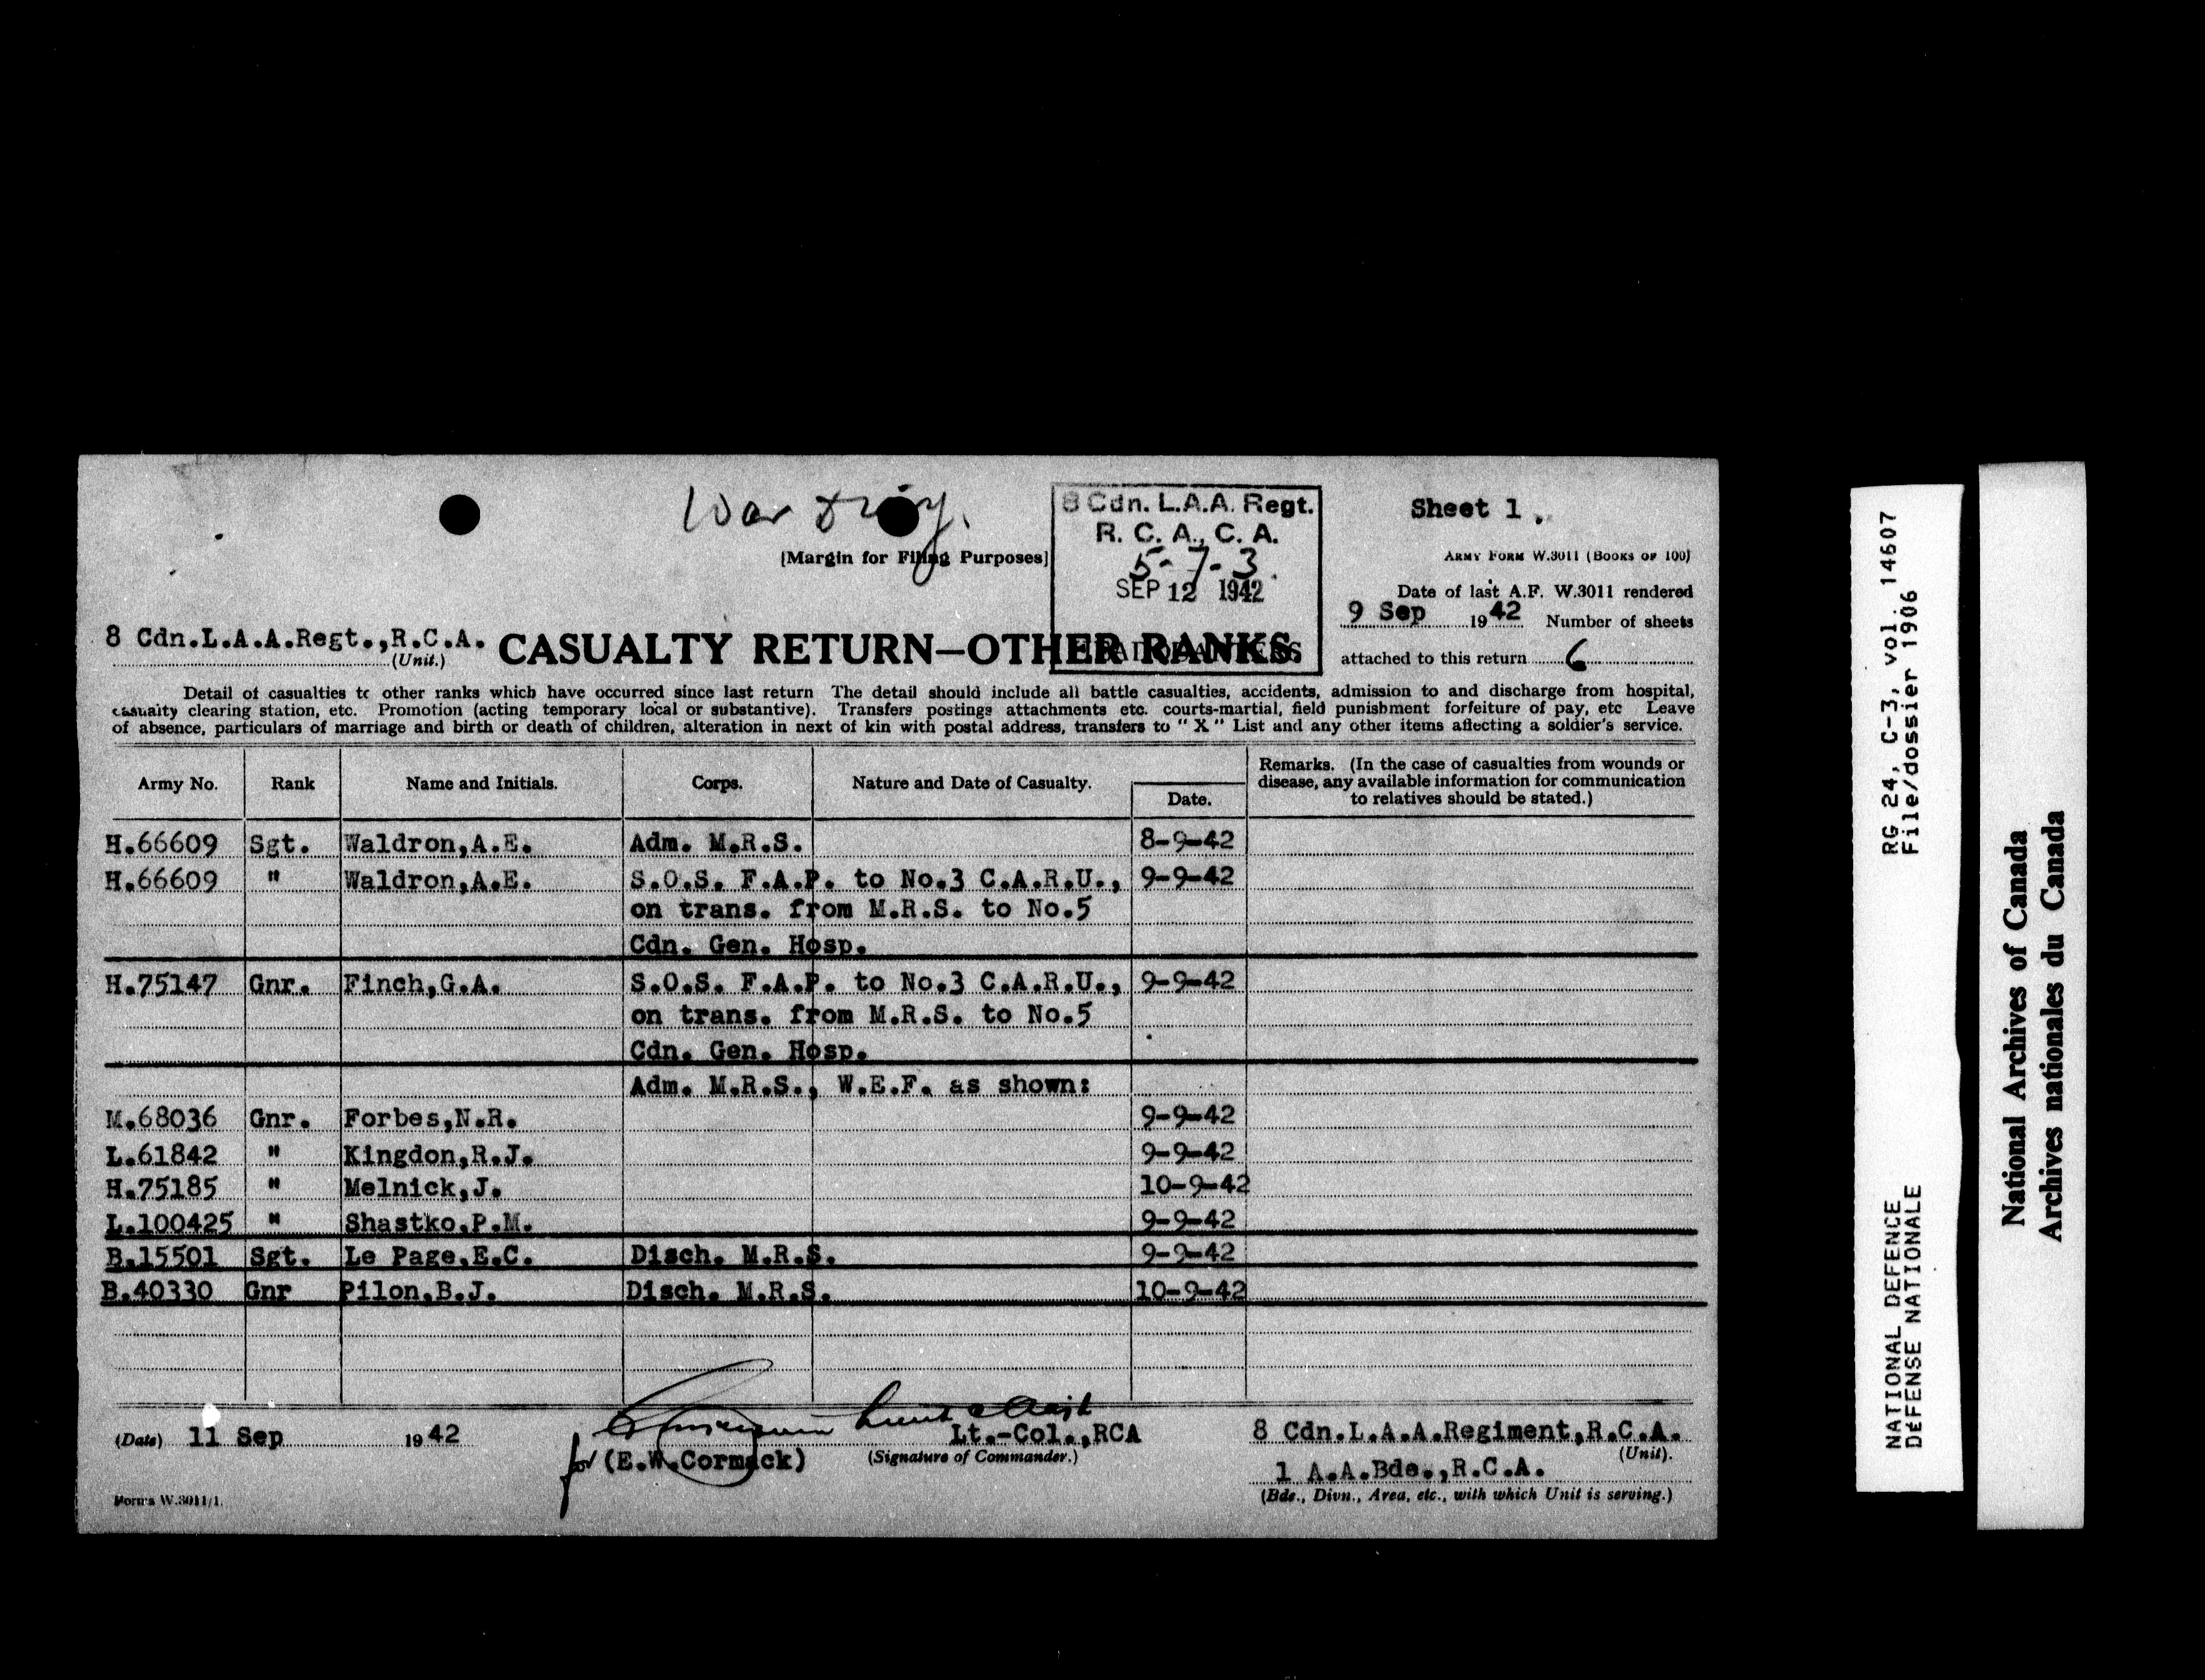 War Diary.
8 Cdn. L.A.A. Regt.
R. C. A., C. A.
5-7-3.
SEP 12 1942
HEADQUARTERS
Sheet 1.
[Margin for Filing Purposes]
ARMY FORM W.3011 (BOOKS OF 100)
Date of last A.F. W.3011 rendered
9 Sep 1942 Number of sheets
attached to this return 6
8 Cdn.L.A.A.Regt.,R.C.A.
(Unit.)
CASUALTY RETURN—OTHER RANKS.
Detail of casualties to other ranks which have occurred since last return The detail should include all battle casualties, accidents, admission to and discharge from hospital,
casualty clearing station, etc. Promotion (acting temporary local or substantive). Transfers postings attachments etc. courts-martial, field punishment forfeiture of pay, etc Leave
of absence, particulars of marriage and birth or death of children, alteration in next of kin with postal address, transfers to "X" List and any other items affecting a soldier's service.
Army No. Rank Name and Initials. Corps. Nature and Date of Casualty. Date. Remarks. (In the case of casualties from wounds or
disease, any available information for communication
to relatives should be stated.)
H.66609 Sgt. Waldron,A.E. Adm. M.R.S. 8-9-42
H.66609 " Waldron,A.E. S.O.S. F.A.P. to No.3 C.A.R.U., 9-9-42
on trans. from M.R.S. to No.5
Cdn. Gen. Hosp.
H.75147 Gnr. Finch,G.A. S.O.S. F.A.P. to No.3 C.A.R.U., 9-9-42
on trans. from M.R.S. to No.5
Cdn. Gen. Hosp.
Adm. M.R.S., W.E.F. as shown:
M.68036 Gnr. Forbes,N.R. 9-9-42
L.61842 " Kingdon,R.J. 9-9-42
H.75185 " Melnick,J. 10-9-42
L.100425 " Shastko,P.M. 9-9-42
B.15501 Sgt. Le Page,E.C. Disch. M.R.S. 9-9-42
B.40330 Gnr Pilon,B.J. Disch. M.R.S. 10-9-42
(Date) 11 Sep 1942
Lt.-Col.,RCA
for (E.W.Cormack) (Signature of Commander.)
8 Cdn.L.A.A.Regiment,R.C.A.
(Unit).
1 A.A.Bde.,R.C.A.
(Bde., Divn., Area, etc., with which Unit is serving.)
Forms W.3011/1.
RG 24, C-3, vol. 14607
File/dossier 1906
NATIONAL DEFENCE
DÉFENSE NATIONALE
National Archives of Canada
Archives nationales du Canada